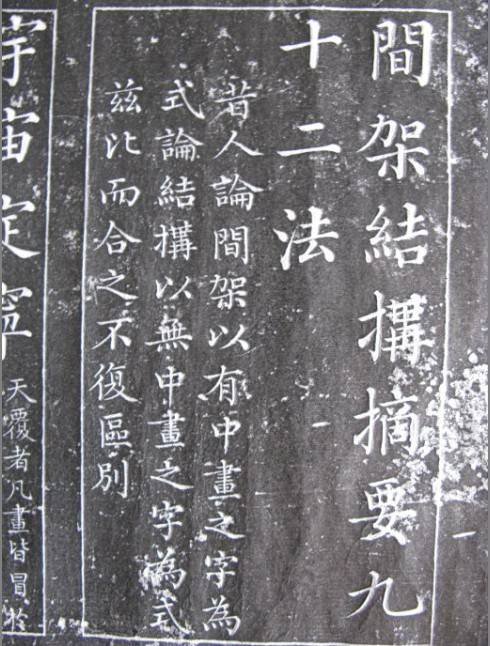 間架結搆摘要九
十二法
昔人論間架以有中畫之字為
式論結搆以無中畫之字為式
兹比而合之不復區別
宇宙定寧
天覆者凡畫皆冒於